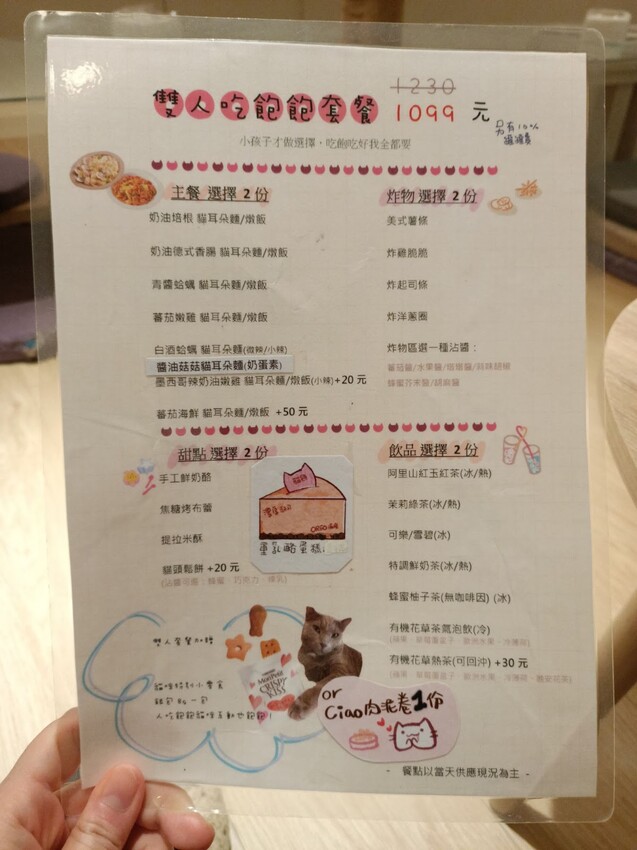 1230
雙人吃飽飽套餐 1099 元
另有10%
服務費
小孩子才做選擇，吃飽吃好我全都要
主餐 選擇 2 份
奶油培根 貓耳朵麵/燉飯
奶油德式香腸 貓耳朵麵/燉飯
青醬蛤蠣 貓耳朵麵/燉飯
蕃茄嫩雞 貓耳朵麵/燉飯
白酒蛤蠣 貓耳朵麵(微辣/小辣)
醬油菇菇貓耳朵麵(奶蛋素)
墨西哥辣奶油嫩雞 貓耳朵麵/燉飯(小辣)+20 元
蕃茄海鮮 貓耳朵麵/燉飯 +50 元
炸物 選擇 2 份
美式薯條
炸雞脆脆
炸起司條
炸洋蔥圈
炸物區選一種沾醬：
蜂蜜芥末醬/胡麻醬
甜點 選擇 2 份
手工鮮奶酪
焦糖烤布蕾
提拉米酥
貓頭鬆餅 +20 元
(沾醬可選：蜂蜜、巧克力、煉乳)
重乳酪蛋糕
飲品 選擇 2 份
阿里山紅玉紅茶(冰/熱)
茉莉綠茶(冰/熱)
可樂/雪碧(冰)
特調鮮奶茶(冰/熱)
蜂蜜柚子茶(無咖啡因) (冰)
有機花草茶氣泡飲(冷)
有機花草熱茶(可回沖) +30 元
雙人套餐加贈
貓咪特製小零食
人吃飽飽貓咪互動也飽飽！
MonPetit
CRISPY
KISS
or
Ciao肉泥卷1份
- 餐點以當天供應現況為主 -